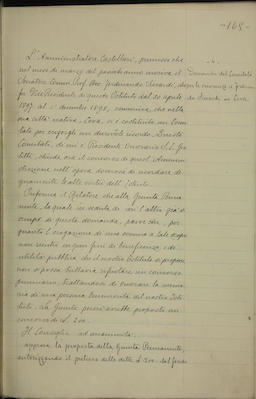 165
L'Amministratore Castelbori, premesso che
nel mese di marzo del passato anno moriva il
Senatore Comm. Prof. Avv. Ferdinando
fu Vice Presidente di questo Istituto dal 20 aprile
1897 al 1° dicembre 1898, comunica che nella
sua città nativa, si è costituito un Comi-
tato per erigergli un durevole ricordo. Questo
Comitato, di cui è Presidente Onorario S. E.
chiede ora il concorso di quest'Ammini-
strazione nell'opera doverosa di ricordare de-
gnamente le alte virtù dell'Estinto.
Informa il Relatore che alla Giunta Perma-
nente, la quale in seduta di ieri l'altro già si
occupò di questa domanda, parve che, per
quanto l'erogazione di una somma a tale scopo
non rientri in quei fini di beneficenza e di
utilità pubblica che il nostro Istituto si propone,
non si possa tuttavia rifiutare un concorso
pecuniario, trattandosi di onorare la memo-
ria di una persona benemerita del nostro Isti-
tuto. La Giunta perciò avrebbe proposto un
concorso di L. 200.
Il Consiglio ad unanimità
approva la proposta della Giunta Permanente
autorizzando il prelievo delle dette L. 200 dal fondo
Domanda del Comitato